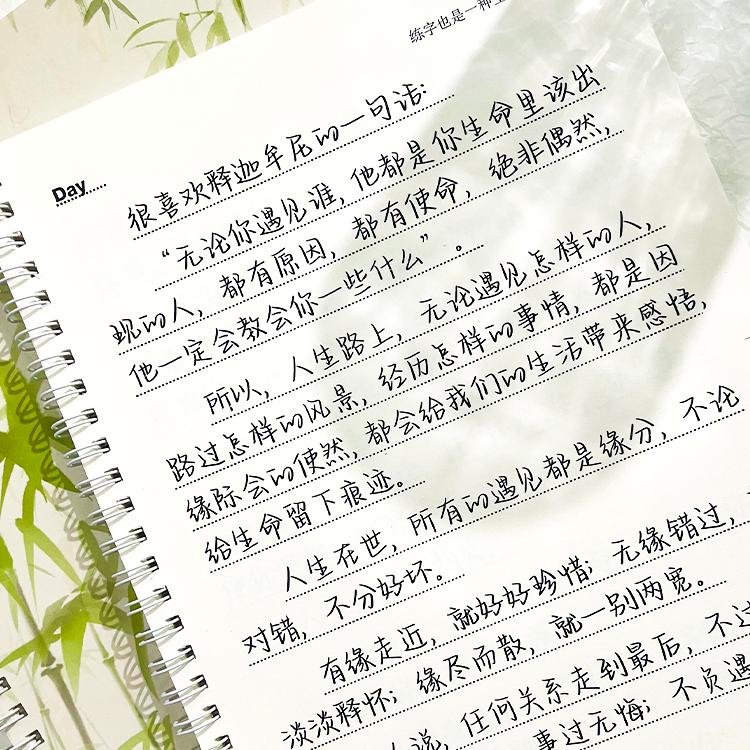 练字也是一种
Day
很喜欢释迦牟尼的一句话:
“无论你遇见谁,他都是你生命里该出
现的人,都有原因,都有使命,绝非偶然,
他一定会教会你一些什么”。
所以,人生路上,无论遇见怎样的人,
路过怎样的风景,经历怎样的事情,都是因
缘际会的使然,都会给我们的生活带来感悟,
给生命留下痕迹。
人生在世,所有的遇见都是缘分,不论
对错,不分好坏。
有缘走近,就好好珍惜;无缘错过,
淡淡释怀;缘尽而散,就一别两宽。
人说,任何关系走到最后,不过
事过无悔;不负遇